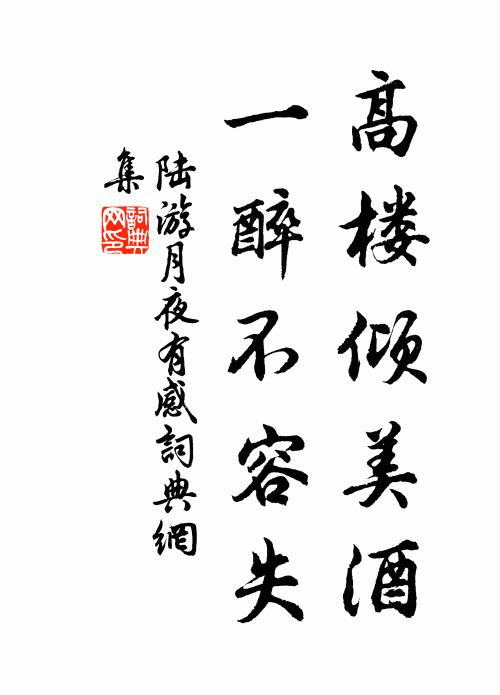 高楼倾美酒
一醉不容失
陆游月夜有感詞典網
集
詞典網印